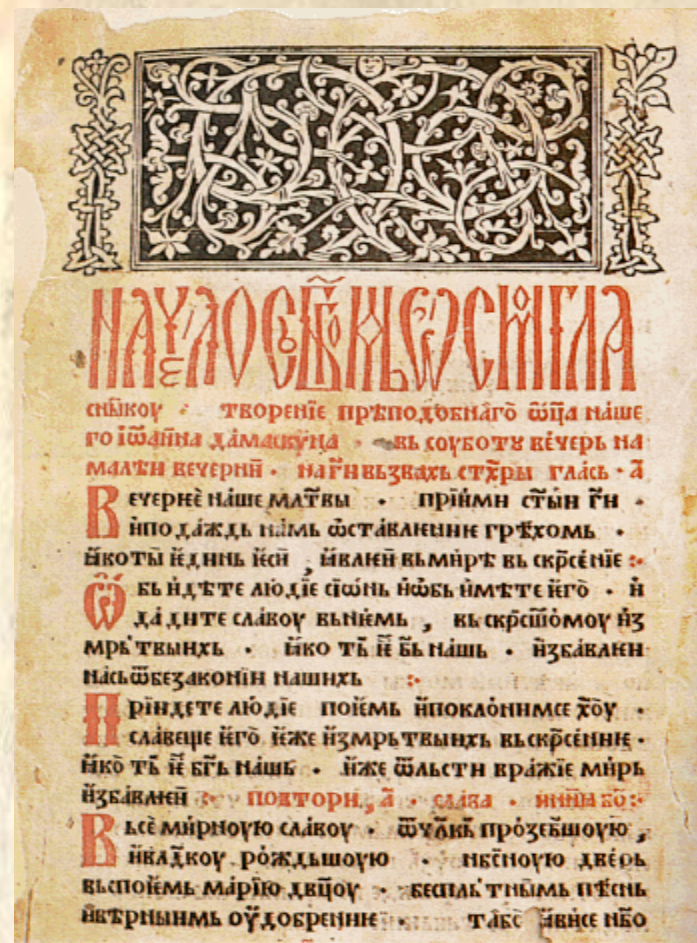 сны̏коу · творенїе прѣподобнаго ѿца наше
го їѡан̑на дамаскѵна · вь соуботꙋ вечерь на
малѣи вечерны · на г҃и вьзвахь стх҃ры гласъ · а҃
Вечернее наше мл҃твы · прїими ст҃ыи г҃и ·
и подаждь намь ѡставлѥнїе грѣхомь ·
ꙗко ты ѥдинь ѥси , ꙗвлѥи вь мирѣ вьскрⷭ҇енїе :·
Ѽбьидѣте людїе сїѡнь и ѡбьимѣте ѥго · и
дадите славоу вь нѥмь , вьскрⷭ҇шомоу из
мрьтвыихь · ꙗко ть ѥ б҃ь нашь · избавлѥи
нась ѿ безаконїи нашихь :·
Прїидете людїе поѥмь и поклонимсе х҃оу ·
славеще ѥго ѥже из мрьтвыихь вьскрⷭ҇енїе ·
ꙗко ть ѥ б҃гь нашь · иже ѿ льсти вражїе мирь
избавлѥи :· повтори, а҃ · слава · и нинꙗ бо҃ :·
Вьсемирноую славоу · ѿ чл҃кь прозебшоую ,
и влⷣкоу рождьшоую · нбⷭ҇ноую дверь
вьспоѥмь марїю дв҃цоу · беспльтнымь пѣснь
и вѣрнымь оудобренїе · та бо ꙗви се нб҃о